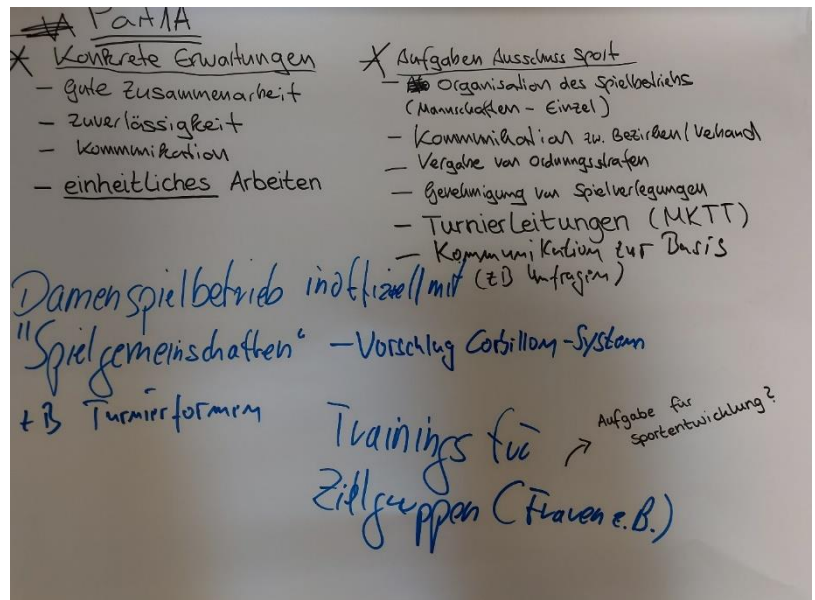 Part 1A
* Konkrete Erwartungen
- gute Zusammenarbeit
- Zuverlässigkeit
- Kommunikation
- einheitliches Arbeiten
* Aufgaben Ausschuss Sport
- Organisation des Spielbetriebs
(Mannschaften - Einzel)
- Kommunikation zw. Bezirken/Verband
- Vergabe von Ordnungsstrafen
- Genehmigung von Spielverlegungen
- Turnierleitungen (MKTT)
- Kommunikation zur Basis
(zB Umfragen)
Damenspielbetrieb inoffiziell mit
"Spielgemeinschaften" - Vorschlag Corbillon-System
zB Turnierformen
Trainings für
Zielgruppen (Frauen z.B.)
→ Aufgabe für
Sportentwicklung?